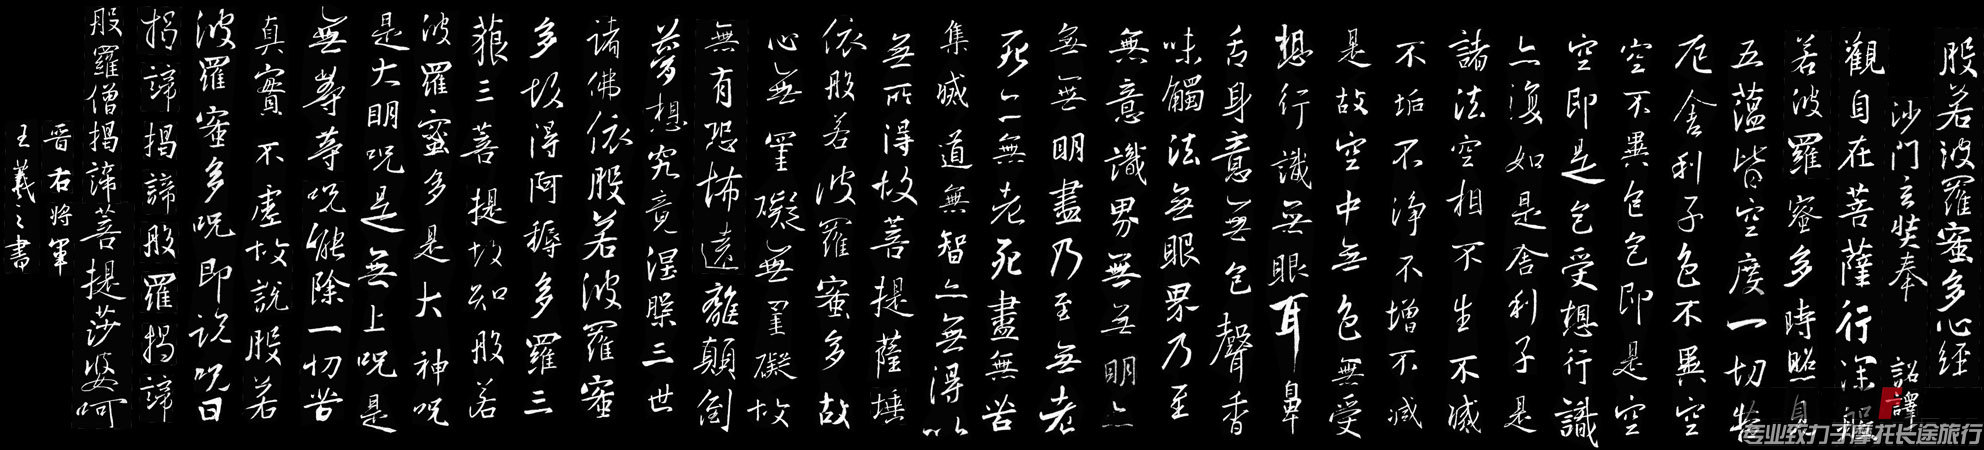 般若波羅蜜多心經
沙門玄奘奉 詔譯
觀自在菩薩行深般
若波羅蜜多時照見
五蘊皆空度一切苦
厄舍利子色不異空
空不異色色即是空
空即是色受想行識
亦復如是舍利子是
諸法空相不生不滅
不垢不淨不增不減
是故空中無色無受
想行識無眼耳鼻
舌身意無色聲香
味觸法無眼界乃至
無意識界無無明亦
無無明盡乃至無老
死亦無老死盡無苦
集滅道無智亦無得以
無所得故菩提薩埵
依般若波羅蜜多故
心無罣礙無罣礙故
無有恐怖遠離顛倒
夢想究竟涅槃三世
諸佛依般若波羅蜜
多故得阿耨多羅三
藐三菩提故知般若
波羅蜜多是大神咒
是大明咒是無上咒是
無等等咒能除一切苦
真實不虛故說般若
波羅蜜多咒即說咒曰
揭諦揭諦般羅揭諦
般羅僧揭諦菩提莎婆呵
晉右將軍
王羲之書
专业致力于摩托长途旅行